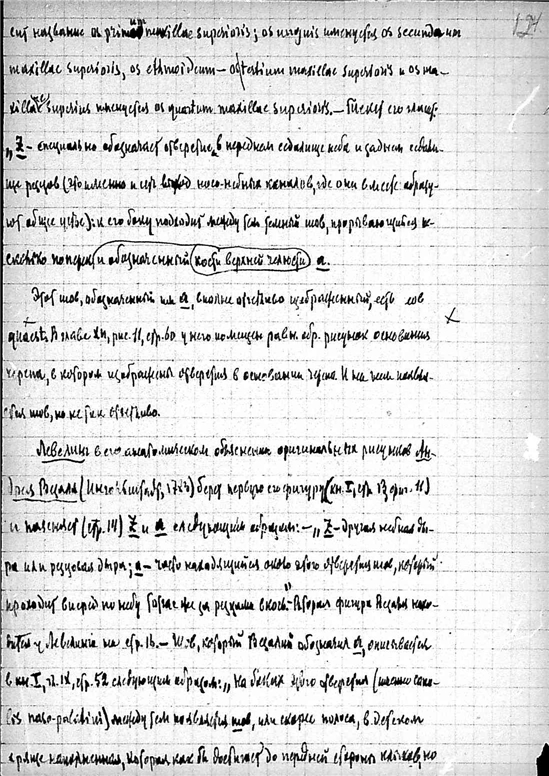 124
сит название os primum maxillae superioris; os unguis именуется os secundum
maxillae superioris, os ethmoideum – os tertium maxillae superioris и os ma-
xillae superius именуется os quartum maxillae superioris. – Текст его гласит:
„Z – специально обозначает отверстие в переднем седалище неба и заднем седали-
ще резцов (это именно и есть носо-небных каналов, где они вместе образу-
ют общее устье): к его боку подходит между тем темный шов, прорывающийся не-
сколько поперек и обозначенный (кости верхней челюсти) a.
Этот шов, обозначенный им a, вполне отчетливо изображенный, есть
quaest. В главе XII, рис. 11, стр. 60 у него помещен рисунок основания
черепа, в котором изображены отверстия в основании черепа. И на нем появля-
ется шов, но не так отчетливо.
Левелинг в его анатомическом объяснении оригинальных рисунков Ан-
дрея Везаля (Ингольштадт, 1783) берет первую его фигуру (кн. I, стр. 13, фиг. 11)
и поясняет (стр. 14) Z и a следующим образом: – „Z – другая небная ды-
ра или резцовая дыра; a – часто находящийся около этого отверстия шов, который
проходит вперед по небу тотчас же за резцами вкось." Вторая фигура Везаля нахо-
дится у Левелинга на стр. 16. – Шов, который Везалий обозначил a, описывается
в кн. I, гл. IX, стр. 52 следующим образом: „На боках этого отверстия (
lis naso-palatini) между тем появляется шов, или скорее полоса, в детском
хряще наполненная, которая как бы достигает до передней стороны клыков, но